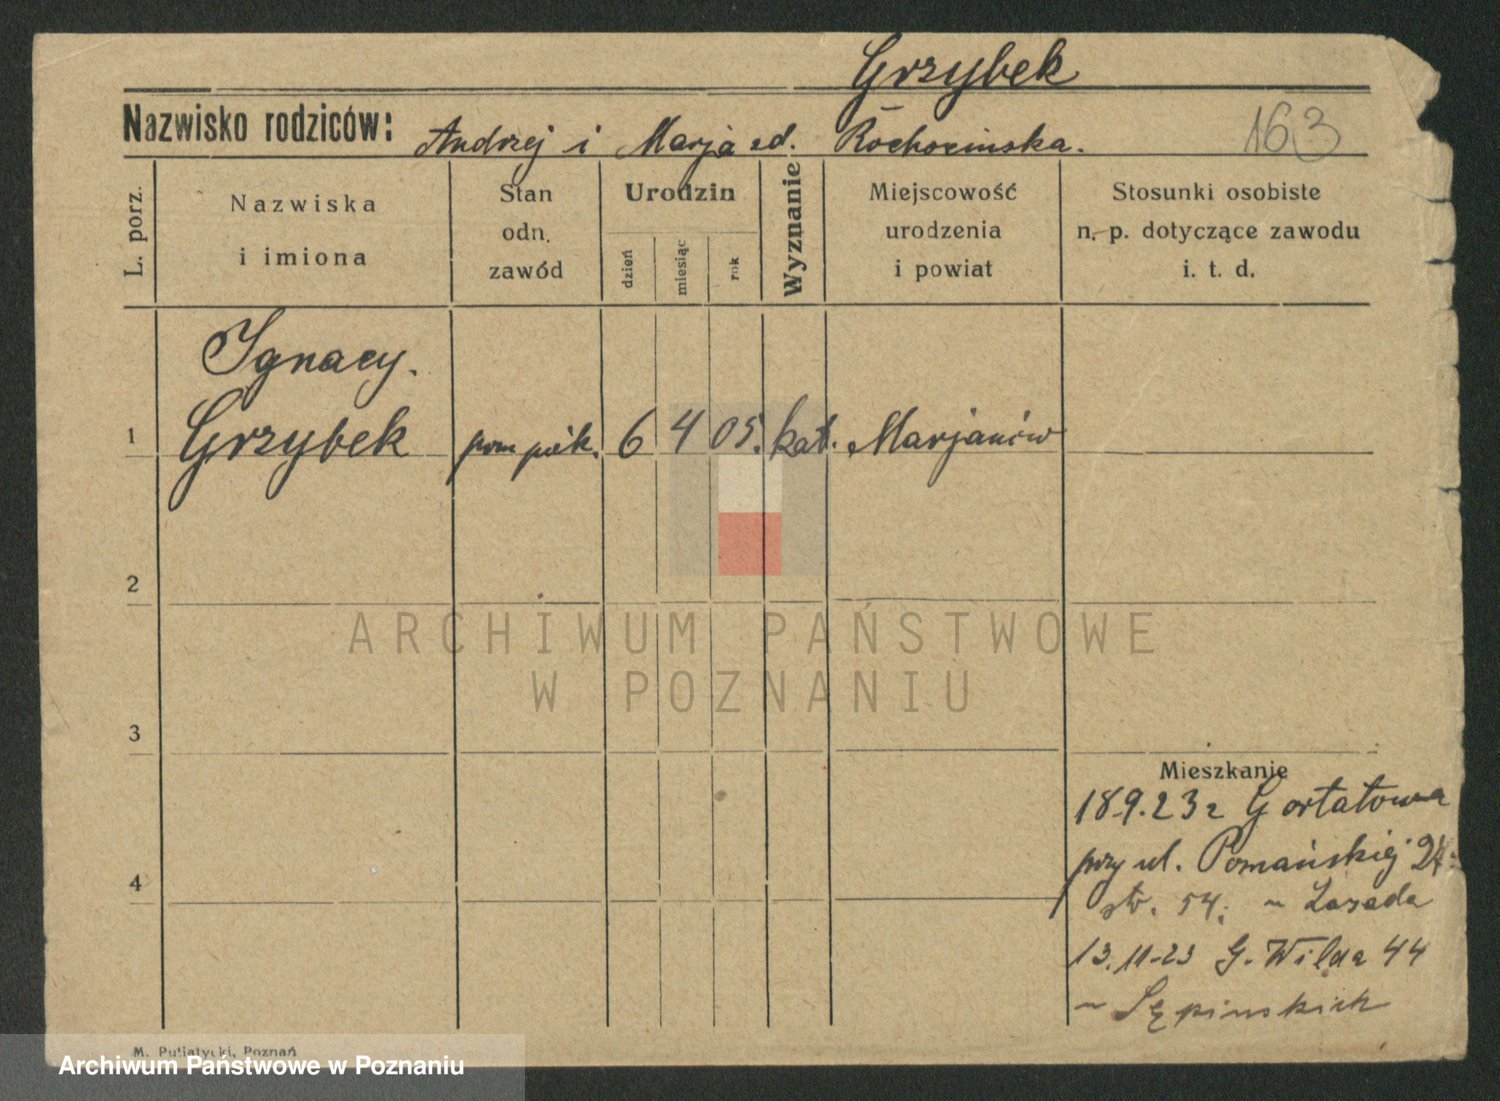 Grzybek
Nazwisko rodziców: Andrzej i Marja zd. Rochocinska.
163
L. porz.
Nazwiska
i imiona
Stan
odn.
zawód
Urodzin
dzień
miesiąc
rok
Wyznanie
Miejscowość
urodzenia
i powiat
Stosunki osobiste
n. p. dotyczące zawodu
i. t. d.
Ignacy.
1 Grzybek pom piek. 6 4 05. kat. Marjanów
2
ARCHIWUM PAŃSTWOWE
W POZNANIU
3
Mieszkanie
18.9.23 z Gortatowa
przy ul. 
4
str. 54. ~ Lasada
13.11-23 G. Wilda 44
~ Sępinskich
M. Putiatycki, Poznań
Archiwum Państwowe w Poznaniu